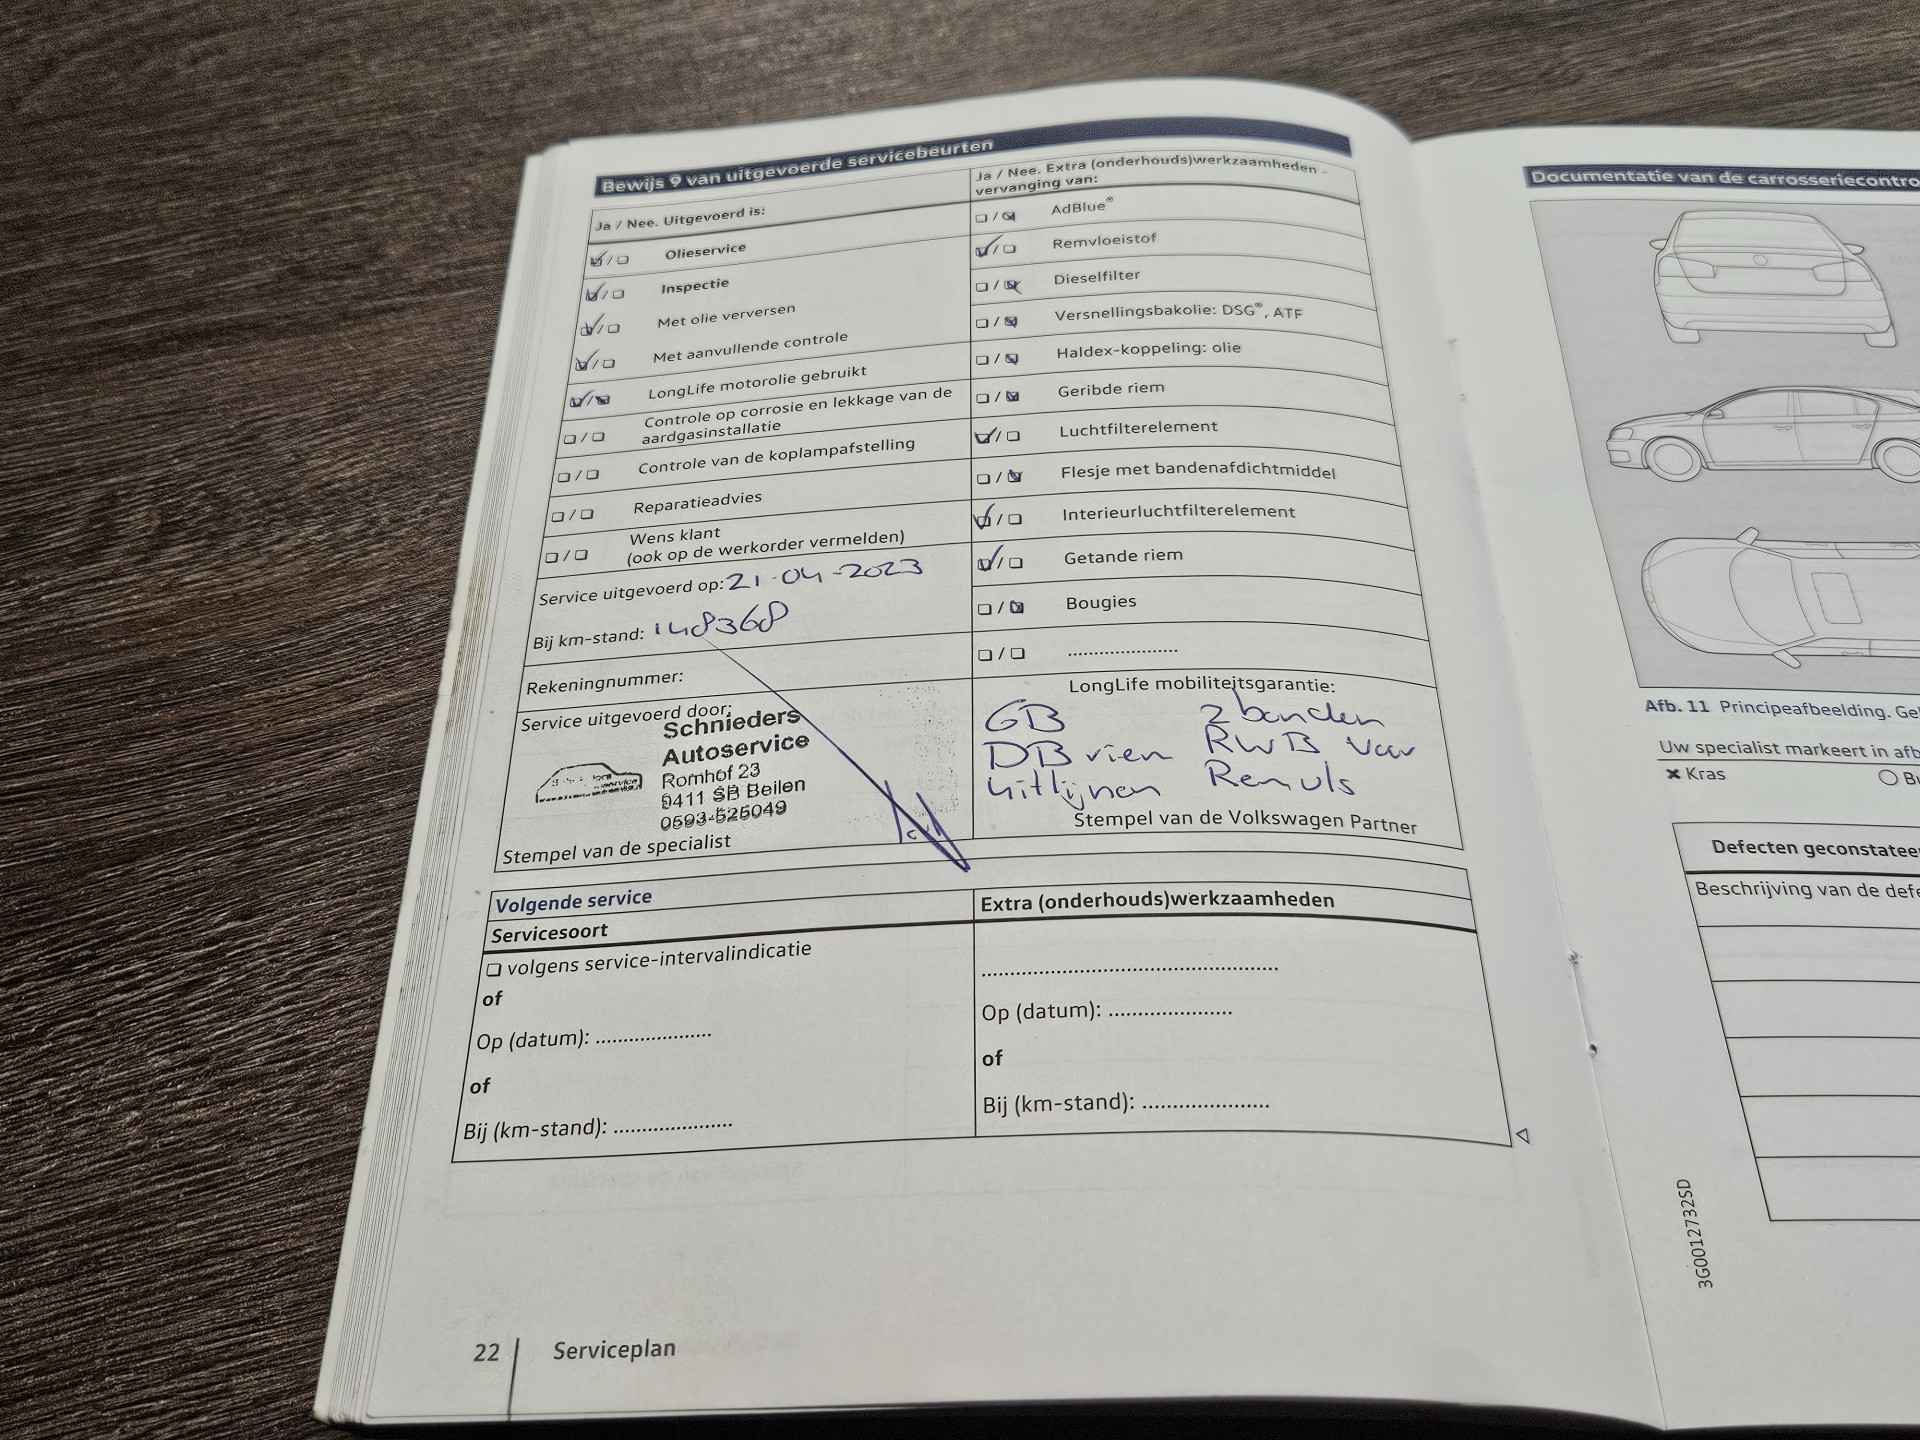 Bewijs 9 van uitgevoerde servicebeurten
Ja / Nee. Uitgevoerd is:
Olieservice
Inspectie
Met olie verversen
Met aanvullende controle
LongLife motorolie gebruikt
Controle op corrosie en lekkage van de
aardgasinstallatie
Controle van de koplampafstelling
Reparatieadvies
Wens klant
(ook op de werkorder vermelden)
Service uitgevoerd op: 21-04-2023
Bij km-stand: 148368
Rekeningnummer:
Service uitgevoerd door:
Schnieders
Autoservice
Romhof 23
9411 SB Beilen
0593-525049
Stempel van de specialist
Ja / Nee. Extra (onderhouds)werkzaamheden -
vervanging van:
AdBlue®
Remvloeistof
Dieselfilter
Versnellingsbakolie: DSG®, ATF
Haldex-koppeling: olie
Geribde riem
Luchtfilterelement
Flesje met bandenafdichtmiddel
Interieurluchtfilterelement
Getande riem
Bougies
....................
LongLife mobiliteitsgarantie:
GB 2 banden
DB riem RWB voor
uitlijnen
Stempel van de Volkswagen Partner
Volgende service
Servicesoort
volgens service-intervalindicatie
of
Op (datum): .....................
of
Bij (km-stand): .....................
Extra (onderhouds)werkzaamheden
.....................................................
Op (datum): ......................
of
Bij (km-stand): ......................
22 Serviceplan
Documentatie van de carrosseriecontro
Afb. 11 Principeafbeelding. Ge
Uw specialist markeert in afb
Kras
Defecten geconstatee
Beschrijving van de defe
3G0012732SD